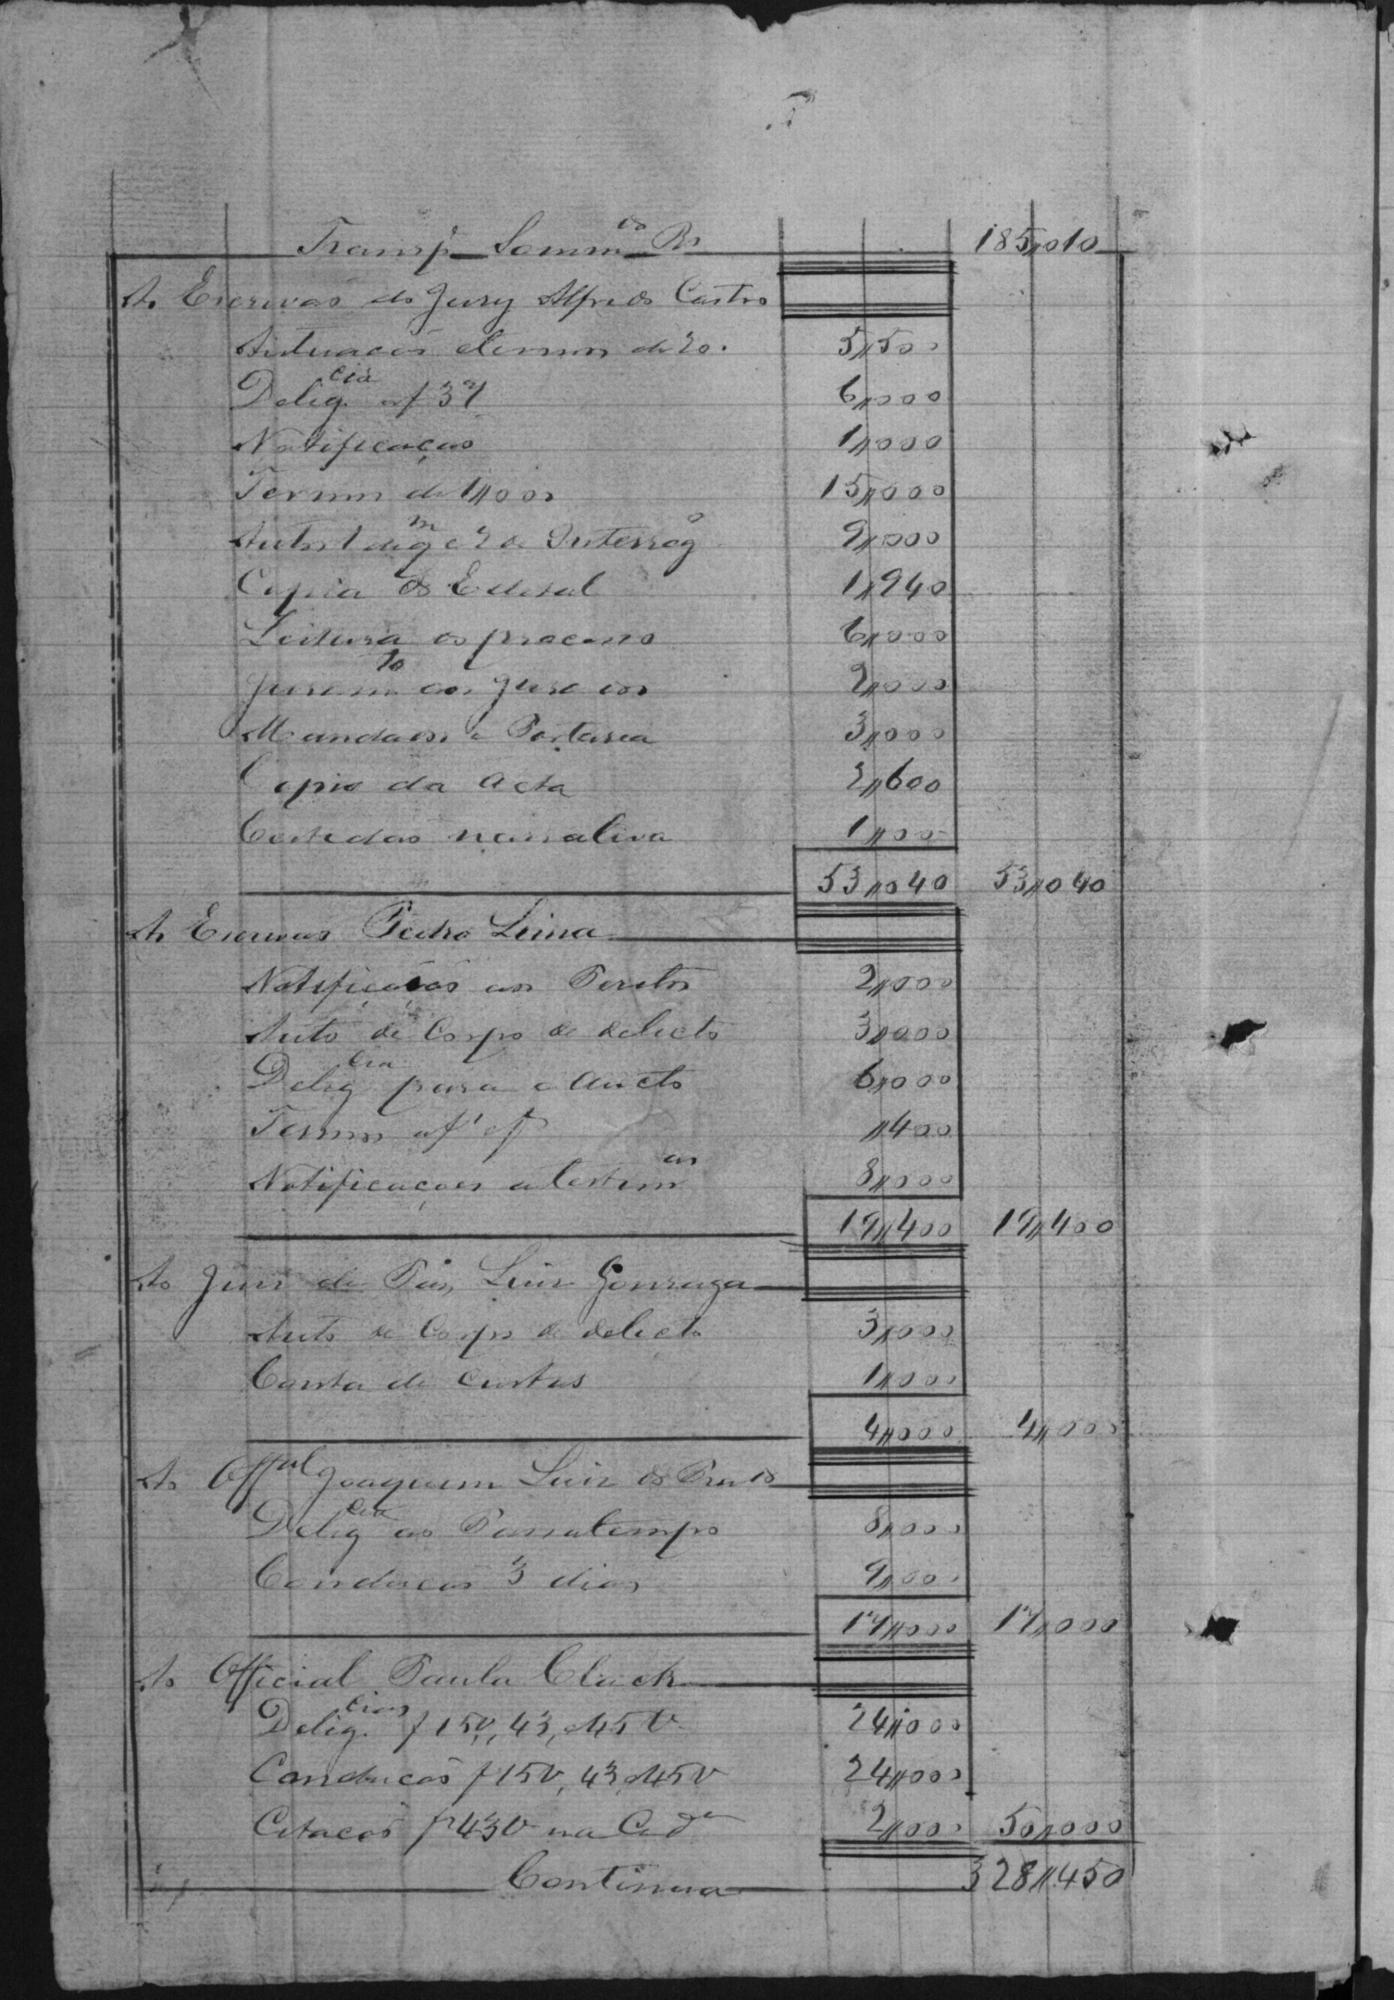 Transp. Somm do Rs 185,010
Ao Escrivão do Jury Alfredo Castro
Autuacão e termos de 20. 5,,500
Delig cia af 37 6,,000
Notificação 1,,000
Termos de 1,,000 15,,000
Autos 1 de q m e 2 de Interrog o 9,,000
Copia do Edital 1,,940
Leitura do processo 6,,000
Juram to aos Jurados 2,,000
Mandados e Portaria 3,,000
Copia da Acta 2,,600
Certidão narrativa 1,,000
53,,040 53,,040
Ao Escrivão Pedro Lima
Notificação aos Peritos 2,,000
Auto de Corpo de delicto 3,,000
Delig cia para o Aucto 6,,000
Termos af 400
Notificações a testm as 8,,000
19,,400 19,,400
Ao Juis de Pas, Luis Gonzaga
Auto de Corpo de delicto 3,,000
Conta de custas 1,,000
4,,000 4,,000
Ao Off al Joaquim Luis do Prado
Delig cia ao Passatempo 8,,000
Conducão 3 dias 9,,000
17,,000 17,,000
Ao Official Paula Clack
Delig cias f 15v, 43, e 45 v 24,,000
Conducão f 15v, 43, e 45v 24,,000
Citacão f 43v na Cad a 2,,000 50,,000
Continua 328,,450